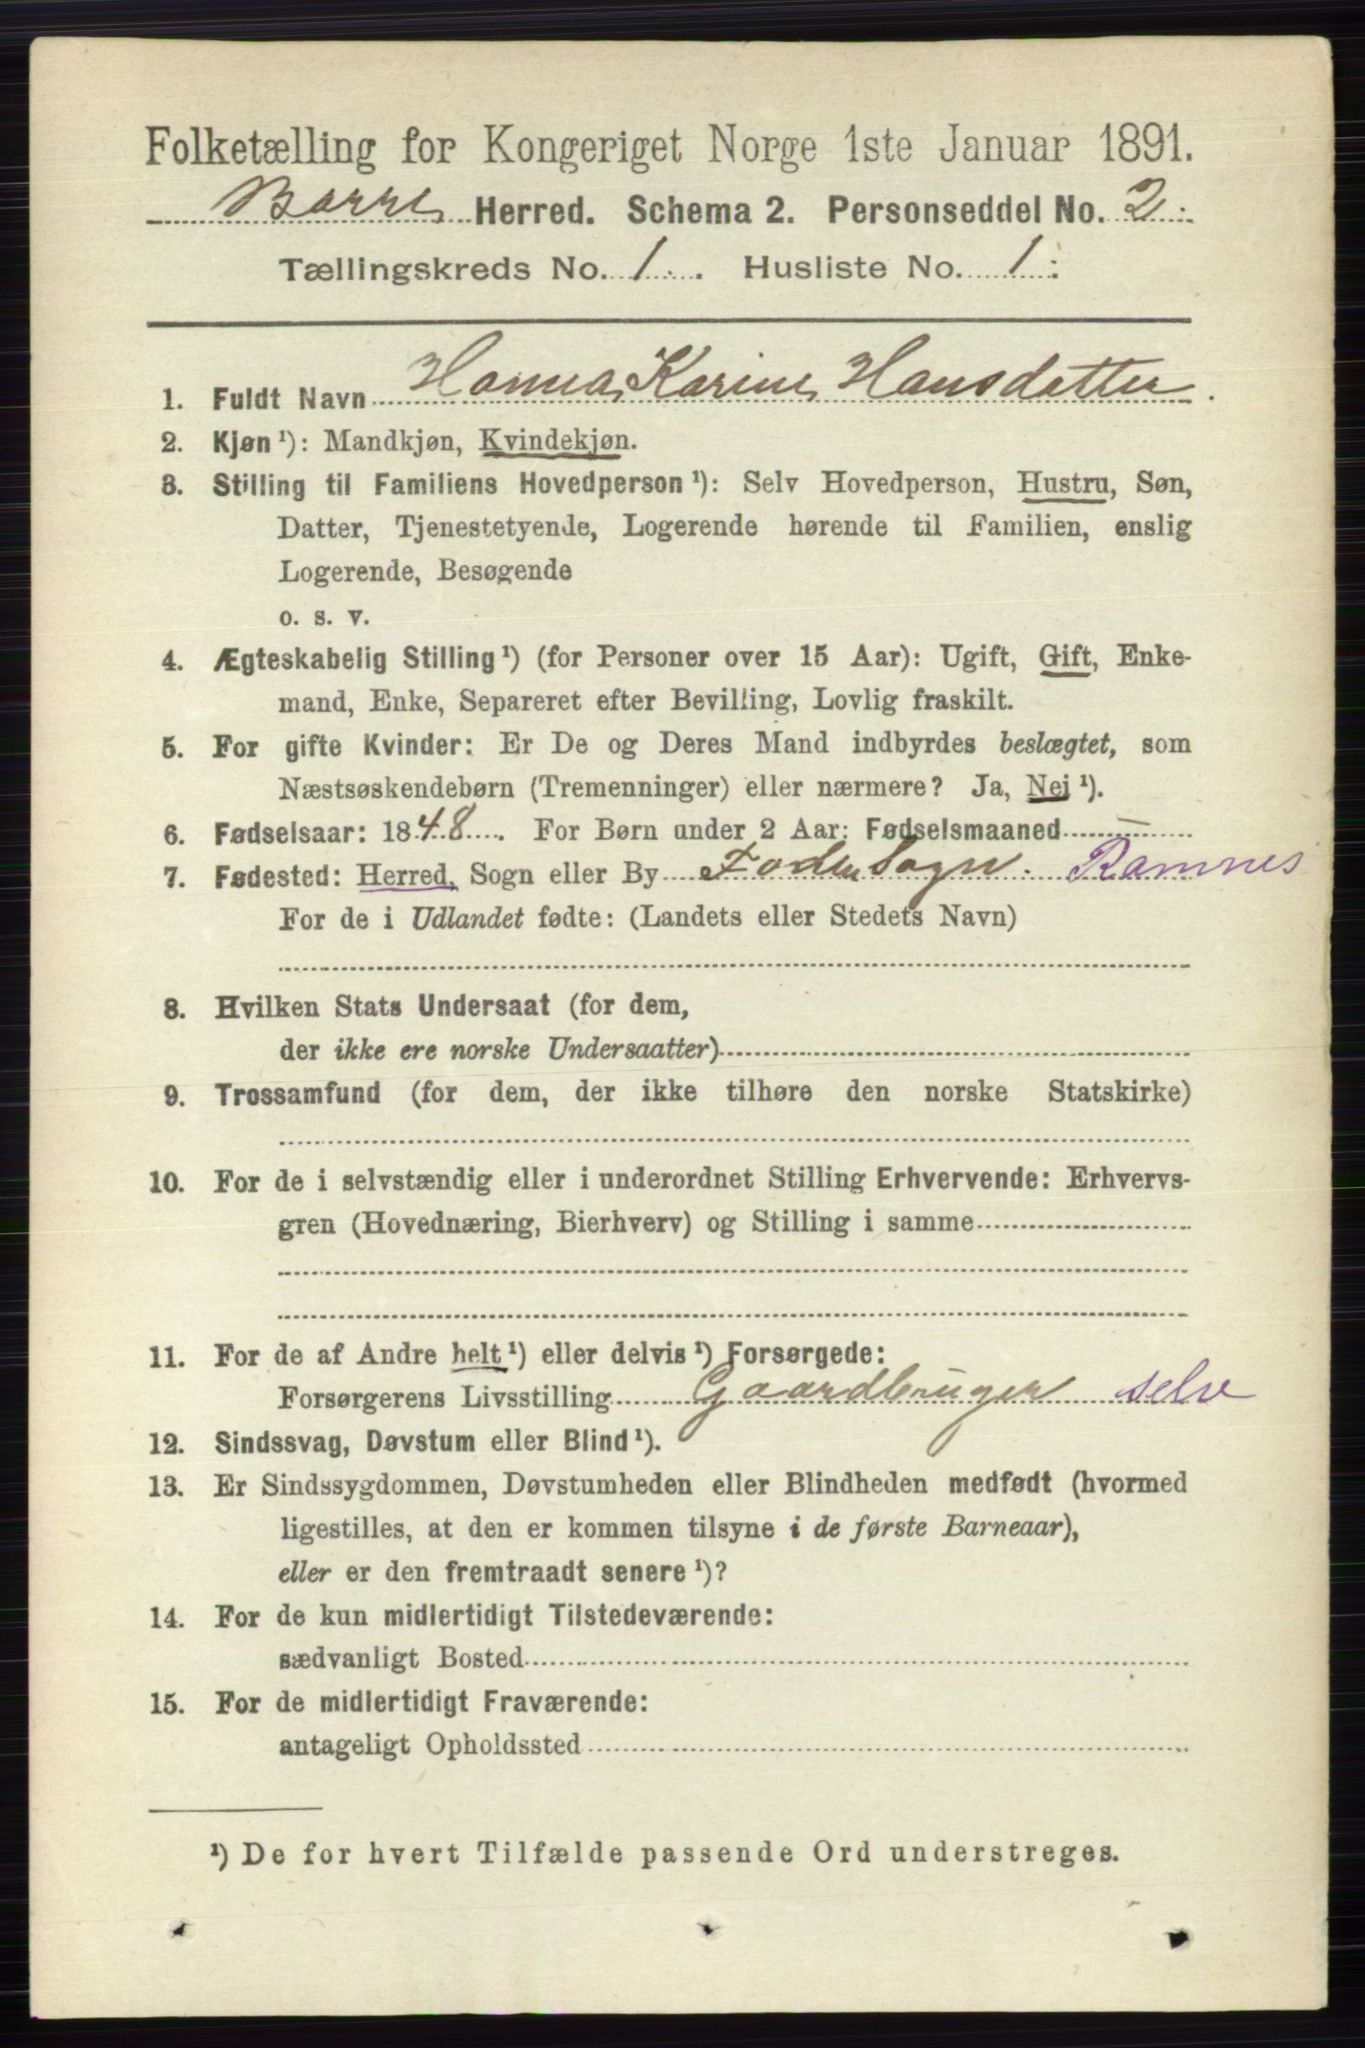 Folketælling for Kongeriget Norge 1ste Januar 1891.
Borre Herred. Schema 2. Personseddel No. 2.
Tællingskreds No. 1. Husliste No. 1.
1. Fuldt Navn Hanna Karine Hansdatter.
2. Kjøn¹): Mandkjøn, Kvindekjøn.
3. Stilling til Familiens Hovedperson¹): Selv Hovedperson, Hustru, Søn,
Datter, Tjenestetyende, Logerende hørende til Familien, enslig
Logerende, Besøgende
o. s. v.
4. Ægteskabelig Stilling¹) (for Personer over 15 Aar): Ugift, Gift, Enke-
mand, Enke, Separeret efter Bevilling, Lovlig fraskilt.
5. For gifte Kvinder: Er De og Deres Mand indbyrdes beslægtet, som
Næstsøskendebørn (Tremenninger) eller nærmere? Ja, Nej¹).
6. Fødselsaar: 1848. For Børn under 2 Aar: Fødselsmaaned —
7. Fødested: Herred, Sogn eller By Foden Sogn. Ramnes
For de i Udlandet fødte: (Landets eller Stedets Navn)
8. Hvilken Stats Undersaat (for dem,
der ikke ere norske Undersaatter)
9. Trossamfund (for dem, der ikke tilhøre den norske Statskirke)
10. For de i selvstændig eller i underordnet Stilling Erhvervende: Erhvervs-
gren (Hovednæring, Bierhverv) og Stilling i samme
11. For de af Andre helt¹) eller delvis¹) Forsørgede:
Forsørgerens Livsstilling Gaardbruger selv
12. Sindssvag, Døvstum eller Blind¹).
13. Er Sindssygdommen, Døvstumheden eller Blindheden medfødt (hvormed
ligestilles, at den er kommen tilsyne i de første Barneaar),
eller er den fremtraadt senere¹)?
14. For de kun midlertidigt Tilstedeværende:
sædvanligt Bosted
15. For de midlertidigt Fraværende:
antageligt Opholdssted
¹) De for hvert Tilfælde passende Ord understreges.